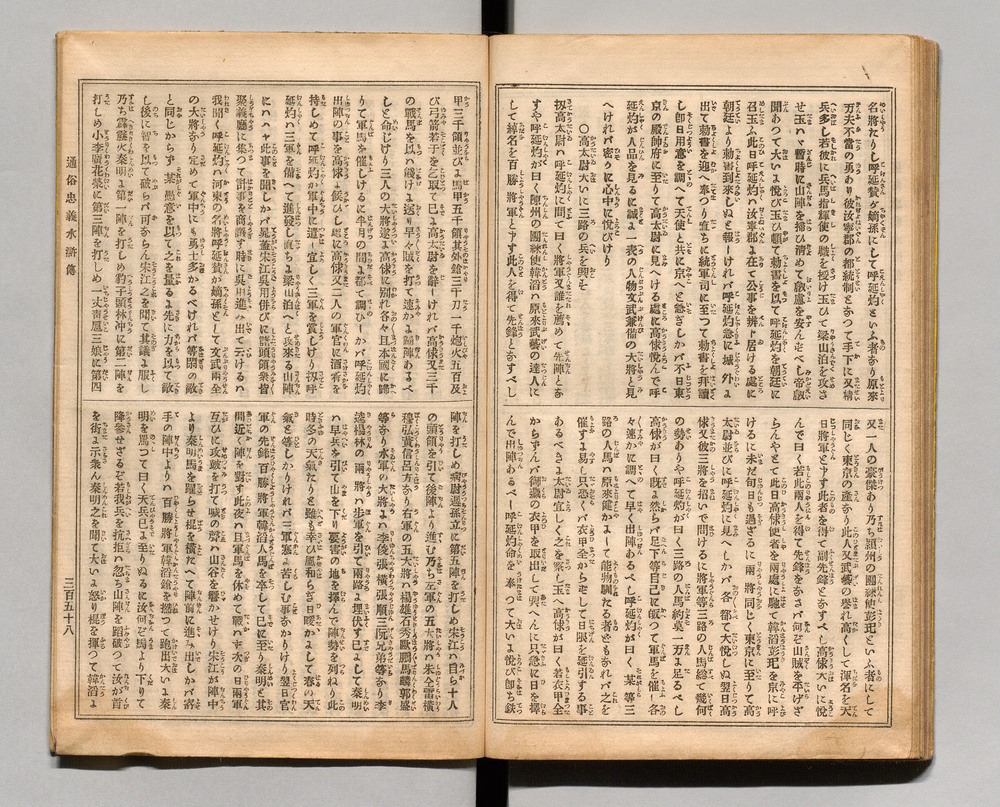 名將たりし呼延賛が嫡孫にして呼延灼といふ者あり原來
万夫不當の勇あり彼汝寧郡の都統制となつて手下に又精
兵多し若彼に兵馬指揮使の職を授け玉ひて梁山泊を攻さ
せ玉ハヾ暫時に山陣を掃ひ清めて叡慮を安んたべし帝叡
聞あつて大いよ悅び玉ひ頓て勅書を以て呼延灼を朝廷に
召玉ふ此日呼延灼ハ汝寧郡よ在て公事を辨ト居ける處に
朝廷より勅書到來しぬと報けれバ呼延灼急に城外よ
出て勅書を迎へ奉つり直ちに統軍司に至つて勅書を拜讀
し卽日用意を調へて天使と共に京へと急ぎしかバ不日東
京の殿帥府に至りて高太尉に見へける處に高俅悅んで呼
延灼が人品を見るに誠よ一表の人物文武兼備の大將と見
へけれバ密かに心中に悅びけり
○高太尉大いに三路の兵を興を
扨高太尉ハ呼延灼に問て曰く將軍又誰を薦めて先陣とな
すや呼延灼が曰く陳州の團練使韓滔ハ原來武藝の達人に
して綽名を百勝將軍と申す此人を得て先鋒となすべし
又一人の豪傑あり乃ち潁州の團練使彭玘といふ者にして
同じく東京の產なり此人又武藝の譽れ高くして渾名を天
目將軍と申す此者を得て副先鋒となすべし高俅大いに悅
んで曰く若此兩人を得て先鋒をなさバ何ぞ山賊を平げざ
らんやとて此日高俅使者を兩處に馳て韓滔彭玘を京に呼
けるに未だ旬日も過ざるに兩將同じく東京に至りて高
太尉並びに呼延灼に見へしかバ各都て大悅しぬ翌日高
俅又彼三將を招いで問けるに將軍等三路の人馬總て幾何
の勢ありや呼延灼が曰く三路の人馬約莫一万よ足るべし
高俅が曰く既よ然らバ足下等自己に皈つて軍馬を催し各
々速かに調へて早く出陣あるべし呼延灼が曰く某等三
路の人馬ハ原來健かよして能物馴たる者どもなれバ之を
催すよ易し只恐くハ衣甲全からずして日限を延引する事
あるべきよ太尉宜しく之を察し玉へ高俅が曰く若衣甲全
からずんバ御藏の衣甲を取出して與へんに只急に日を擇
んで出陣あるべし呼延灼命を奉つて大いよ悅び卽ち鉄
甲三千領並びよ馬甲五千領其外鎗三千刀一千炮火五百及
び弓箭若干を乞取て已よ高太尉を辭けれバ高俅又三千
の戰馬を以ハ餞けよ送り早々賊を打て速かよ歸陣あるべ
しと命じけり三人の大將遂よ高俅に別れ各々且本國に歸
りて軍馬を催しけるに半月の間よ都て調ひしかバ呼延灼
出陣の事を高俅よ候ひし處に高俅又二人の軍官に酒肴を
持しめて呼延灼が軍中に遣し宜しく三軍を賞しけり扨呼
延灼ハ三軍を備へて進發し直ちよ梁山泊へと兵來る山陣
にハハや此事を聞しかバ晁蓋朱江吳用並びに諸頭領を皆
聚義廳に集つて計を商議す時に吳用進み出て云けるハ
我聞く呼延灼ハ河東の名將呼延賛が嫡孫として文武兩全
の大將なり定めて軍中にも勇士多かるべけれバ等閑の敵
と同じからず某愚意を以て之を量るよ先に力を以て敵
し後に智を以て破らバ可なるべし朱江之を聞て其議よ服し
乃ち霹靂火秦明よ第一陣を打しめ豹子頭林冲に第二陣を
打しめ小李廣花榮に第三陣を打しめ一丈靑扈三娘に第四
陣を打しめ病尉遲孫立に第五陣を打しめ朱江ハ自ら十人
の頭領を引て後陣より進む乃ち左軍の五大將ハ朱仝雷橫
穆弘黃信呂方なり右軍の五大將ハ楊雄石秀歐鵬馬麟郭盛
等なり水軍の大將よハ李俊張橫張順三阮兄弟等なり李
逵楊林の兩將ハ步軍を引て兩路よ埋伏す已よして秦明
ハ早兵を引て山を下り要害の地を擇んで陣勢を列ねり此
時冬の天氣たりと雖も幸ひ風和らぎ日暖かよして春の天
氣と等しかりければ三軍寒よ苦しむ事なかりけり翌日官
軍の先鋒百勝將軍韓滔人馬を率して已に至り秦明と其
間近く陣を對す此夜ハ且軍馬を休めて戰ハず次の日兩軍
互ひに攻鼓を打て喊の聲ハ山谷を響かせけり朱江が陣中
より秦明馬を躍らせ棍を橫たへて陣前に進み出しかバ敵
手の陣中よりハ百勝將軍韓滔鎗を撚つて跑出大いよ秦
明を罵つて曰く天兵已よ至りぬるに汝何ぞ馬より下りて
降參せざるぞ若我兵を抗拒ハ忽ち山陣を蹈破つて汝が首
を街よ示衆ん秦明之を聞て大いよ怒り棍を揮つて韓滔よ
通俗忠義水滸傳
三百五十八